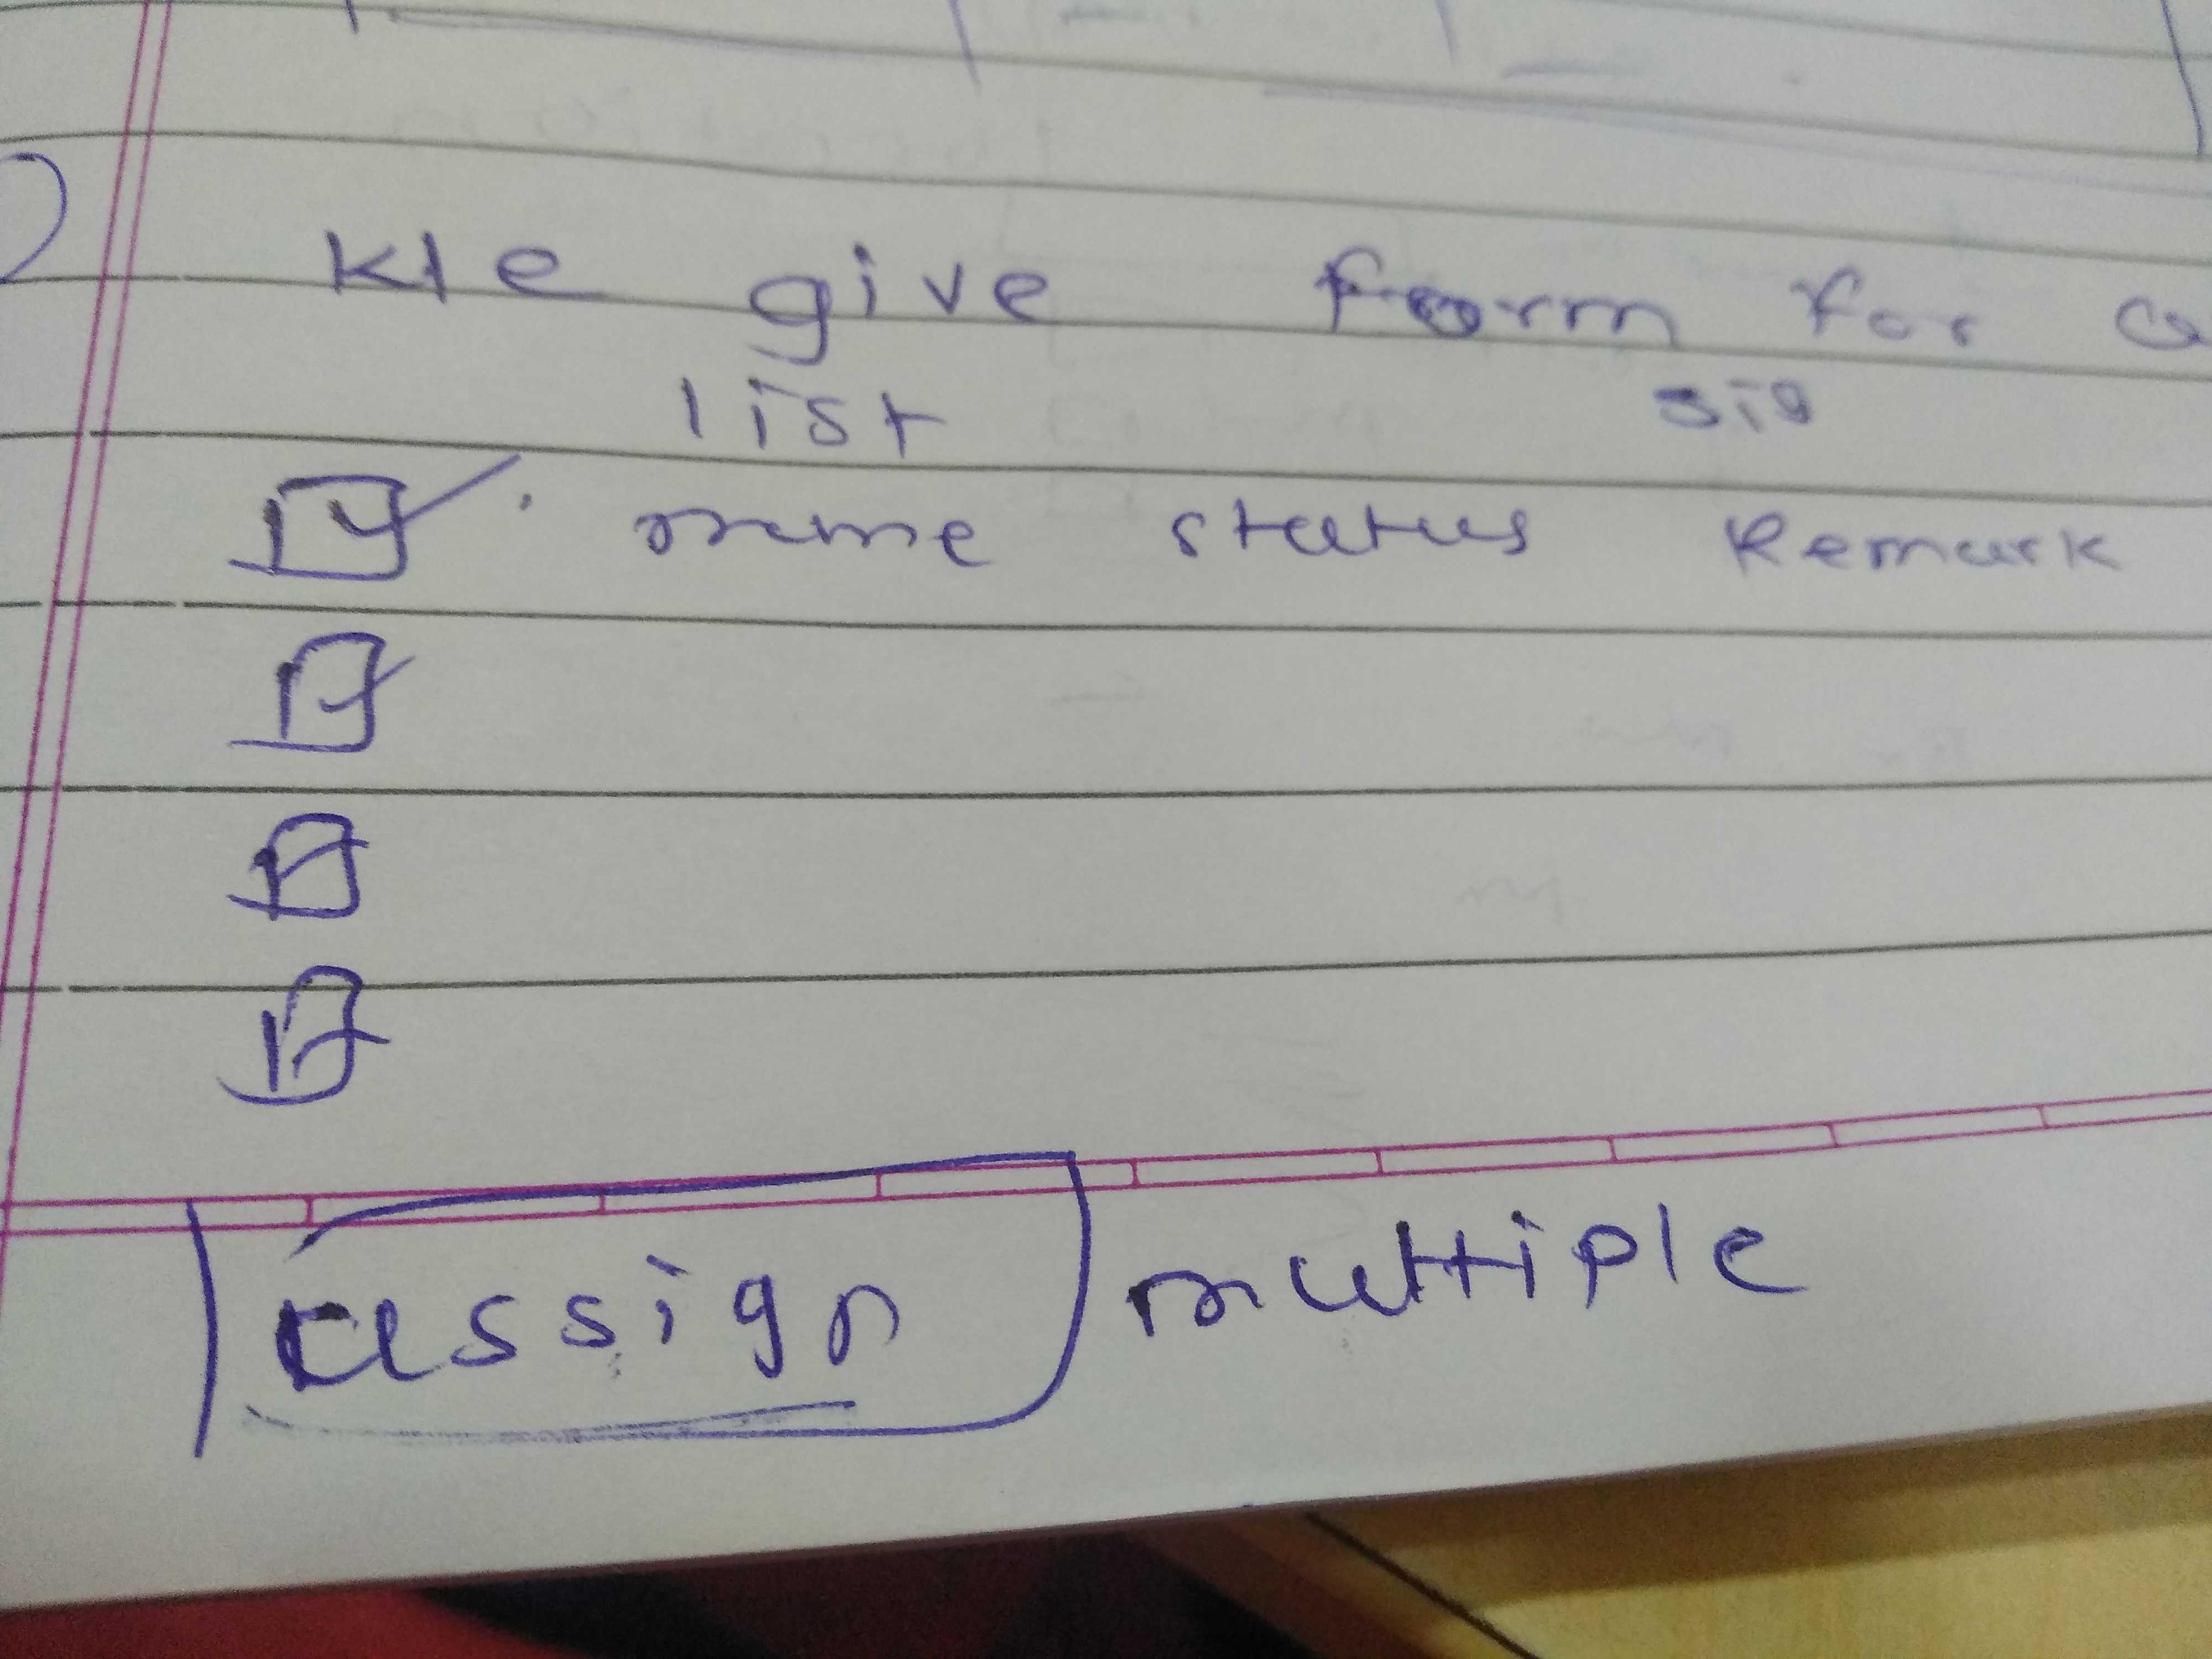 kle give form for a
list sig
name status Remark
assign multiple